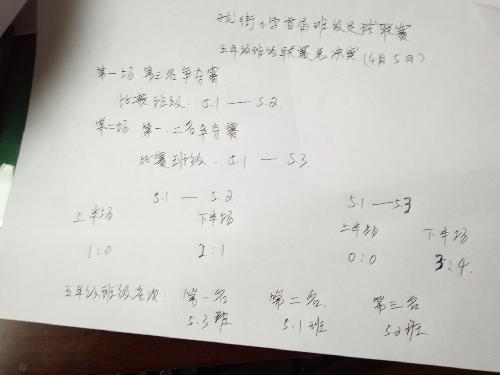 龙街小学首届班级足球联赛
五年级班级联赛总决赛(4月5日)
第一场 第三名争夺赛
比赛班级: 5.1 — 5.2.
第二场 第一.二名争夺赛
比赛班级: 5.1 — 5.3.
5.1 — 5.2 5.1 — 5.3
上半场 下半场 上半场 下半场
1:0 1:1 0:0 3:4.
五年级班级名次: 第一名 第二名 第三名
5.3班 5.1班 5.2班